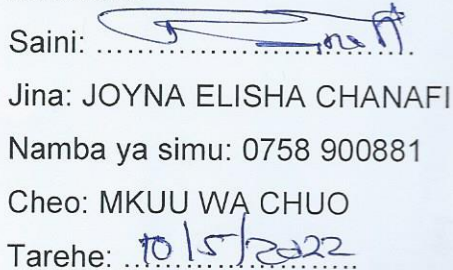 Saini: ..............................
Jina: JOYNA ELISHA CHANAFI
Namba ya simu: 0758 900881
Cheo: MKUU WA CHUO
Tarehe: 10/5/2022